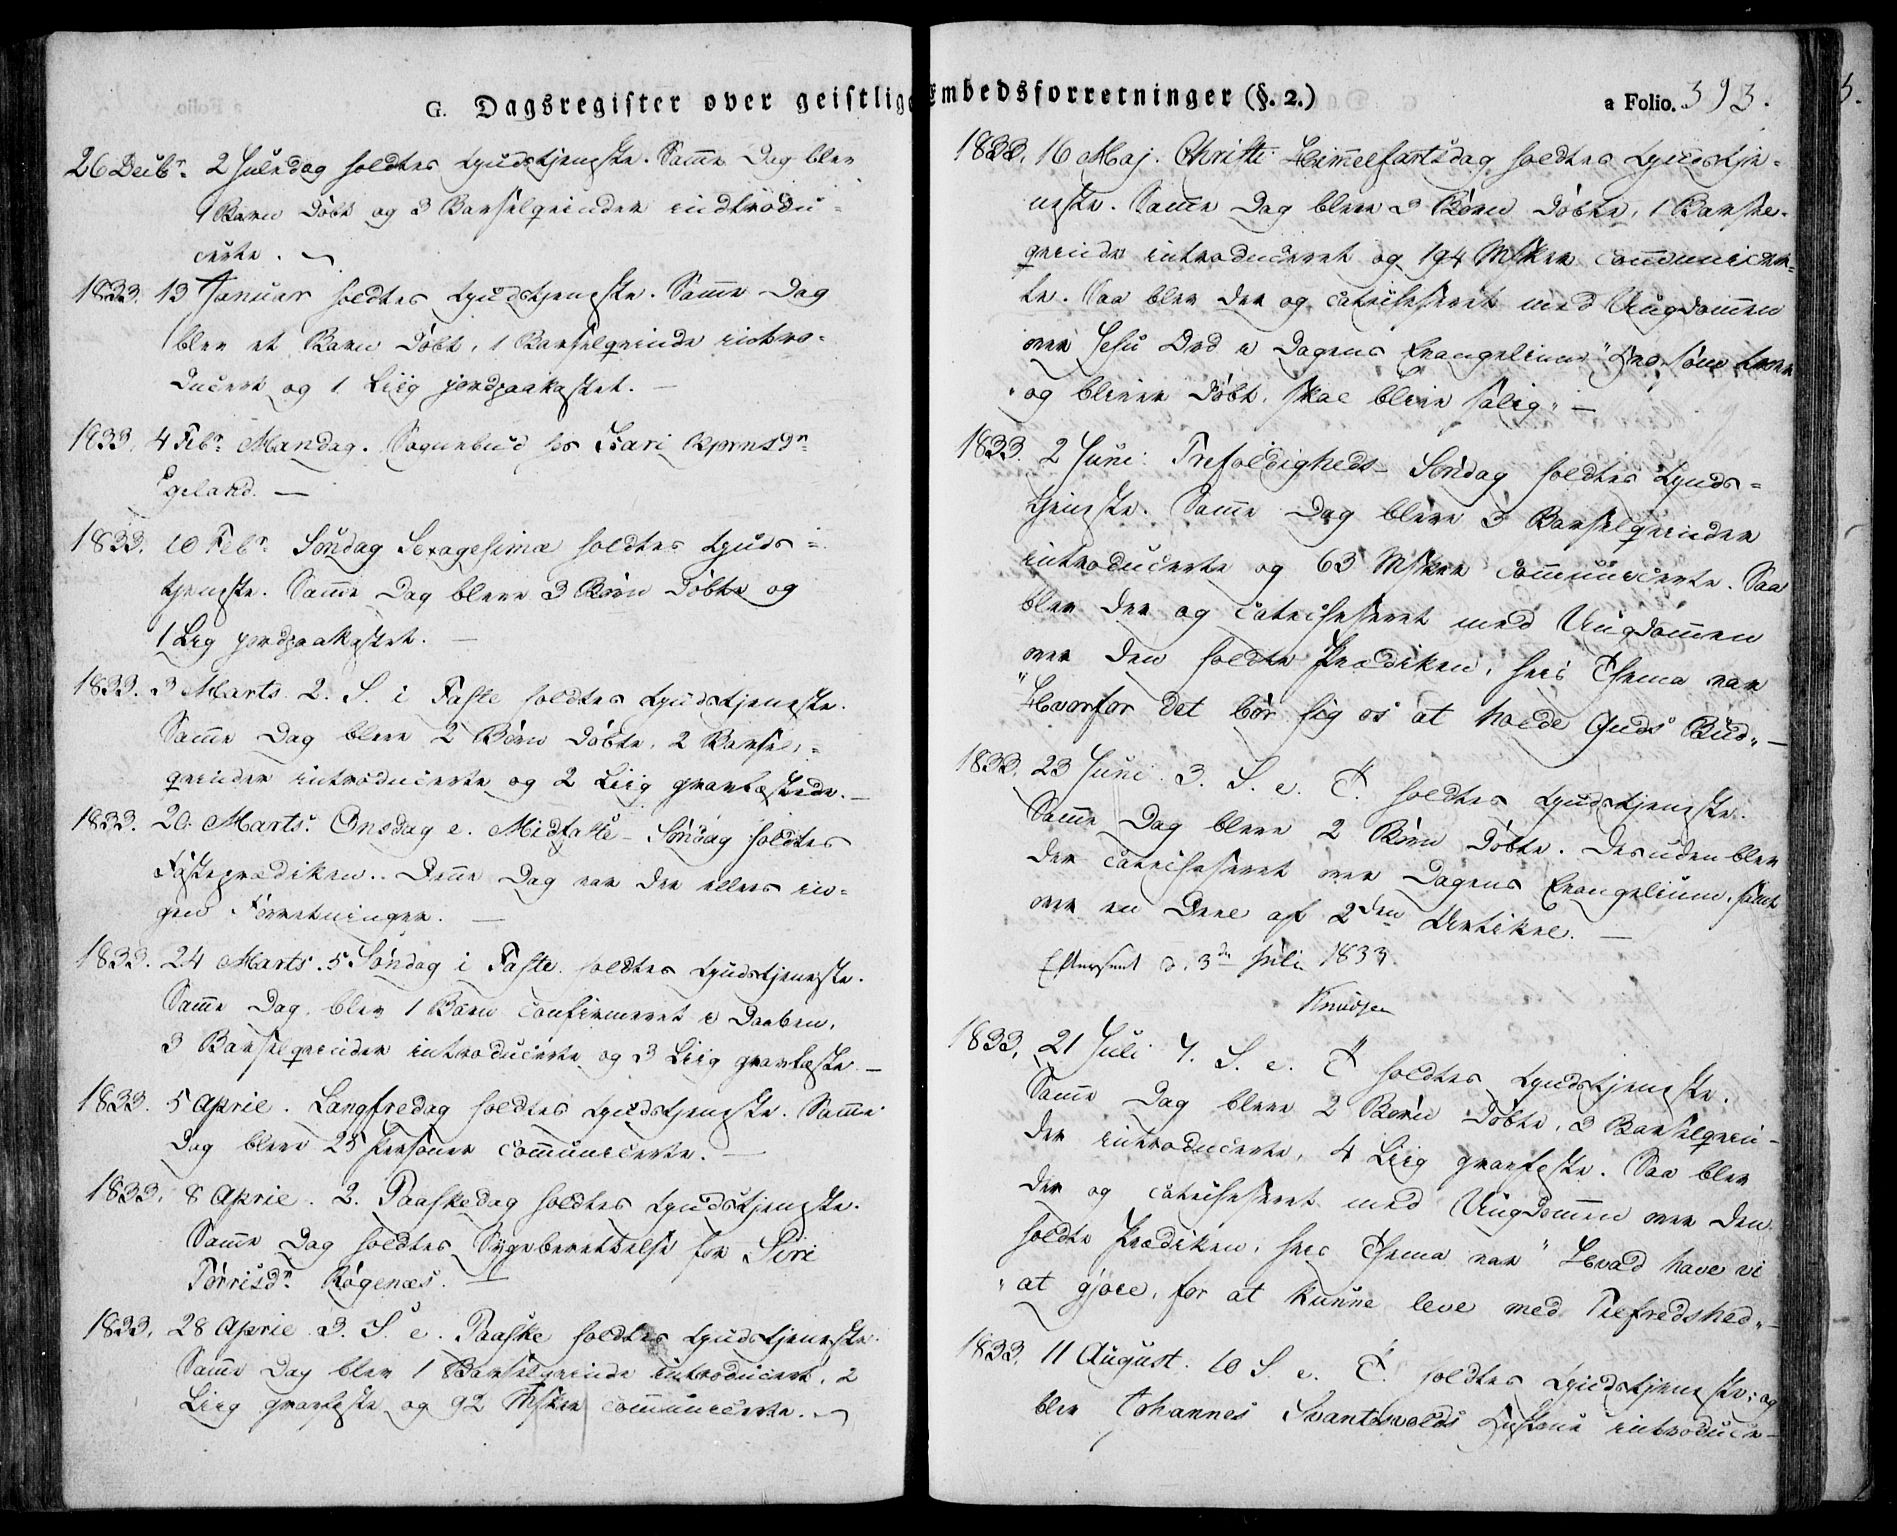 G. Dagsregister over geistlige Embedsforretninger (§. 2.)
a Folio. 393.
26 Decbr. 2 Juledag holdtes Gudstjeneste. Samme Dag blev
1 Barn døbt og 3 Barselqvinder indtrodu=
certe.
1833. 13 Januar holdtes Gudstjeneste. Samme Dag
blev et Barn døbt, 1 Barselqvinde intro=
ducert og 1 Liig jordpaakastet. —
1833. 4 Febr. Mandag. Sognebud hos
Egeland. —
1833. 10 Febr. Søndag Sexagesima holdtes Guds=
tjeneste. Samme Dag bleve 3 Børn døbte og
1 Lig jordpaakastet. —
1833. 3 Marts 2. S. i Faste holdtes Gudstjeneste.
Samme Dag bleve 2 Børn døbte, 2 Barsel=
qvinder introducerte og 2 Liig gravfæstede. —
1833. 20 Marts. Onsdag e. Midfaste-Søndag holdtes
Fasteprædiken. Denne Dag var der ellers in=
gen Forretninger. —
1833. 24 Marts. 5 Søndag i Faste holdtes Gudstjeneste.
Samme Dag blev 1 Barn confirmeret i Daaben,
3 Barselqvinder introducerte og 3 Liig gravfæste —
1833. 5 April. Langfredag holdtes Gudstjeneste. Samme
Dag bleve 25 Personer communicerte. —
1833. 8 April. 2. Paaskedag holdtes Gudstjeneste.
Samme Dag holdtes Sygeberettelse for Siri
Tørrisdr. Røgenæs. —
1833. 28 April 3. S. e. Paaske holdtes Gudstjeneste.
Samme Dag blev 1 Barselqvinde introducert, 2
Liig gravfæste og 92 Msker communicerte.
1833. 16 Maj. Christi Himmelfartsdag holdtes Gudstje=
neste. Samme Dag bleve 3 Børn døbte, 1 Barsel=
qvinde introduceret og 194 Msker communicer=
te. Saa blev der og catechiseret med Ungdommen
over Jesu Ord i Dagens Evangelium "Hvo som troer
"og bliver døbt, skal blive salig" —
1833. 2 Juni. Trefoldigheds-Søndag holdtes Guds=
tjeneste. Samme Dag bleve 3 Barselqvinder
introducerte og 63 Msker communicerte. Saa
blev der og catechiseret med Ungdommen
over den holdte Prædiken, hvis Thema var
"Hvorfor det bør sig os at holde Guds Bud" —
1833. 23 Juni 3. S. e. T. holdtes Gudstjeneste.
Samme Dag bleve 2 Børn døbte. Desuden blev
der catechiseret over Dagens Evangelium, samt
over en Deel af 2den Artikel. —
Efterseet d. 3de Juli 1833.
Knudsen
1833. 21 Juli 7. S. e. T. holdtes Gudstjeneste.
Samme Dag bleve 2 Børn døbte, 3 Barselqvin=
der introducerte, 4 Liig gravfæste. Saa blev
der og catechiseret med Ungdommen over den
holdte Prædiken, hvis Thema var "Hvad have vi
"at gjøre, for at kunne leve med Tilfredshed" —
1833. 11 August. 10 S. e. T. holdtes Gudstjeneste; og
blev Johannes Svantesvolds Hustrue introducer=